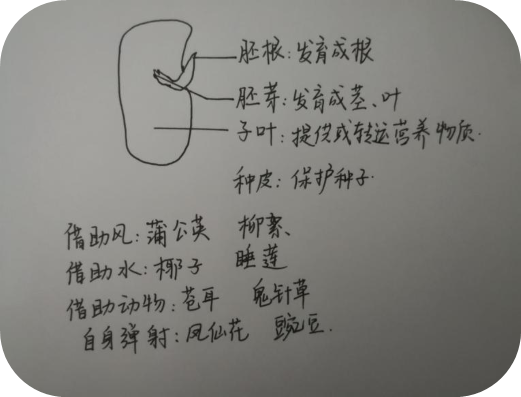 胚根:发育成根
胚芽:发育成茎、叶
子叶:提供或转运营养物质.
种皮:保护种子.
借助风:蒲公英 柳絮、
借助水:椰子 睡莲
借助动物:苍耳 鬼针草
自身弹射:凤仙花 豌豆.